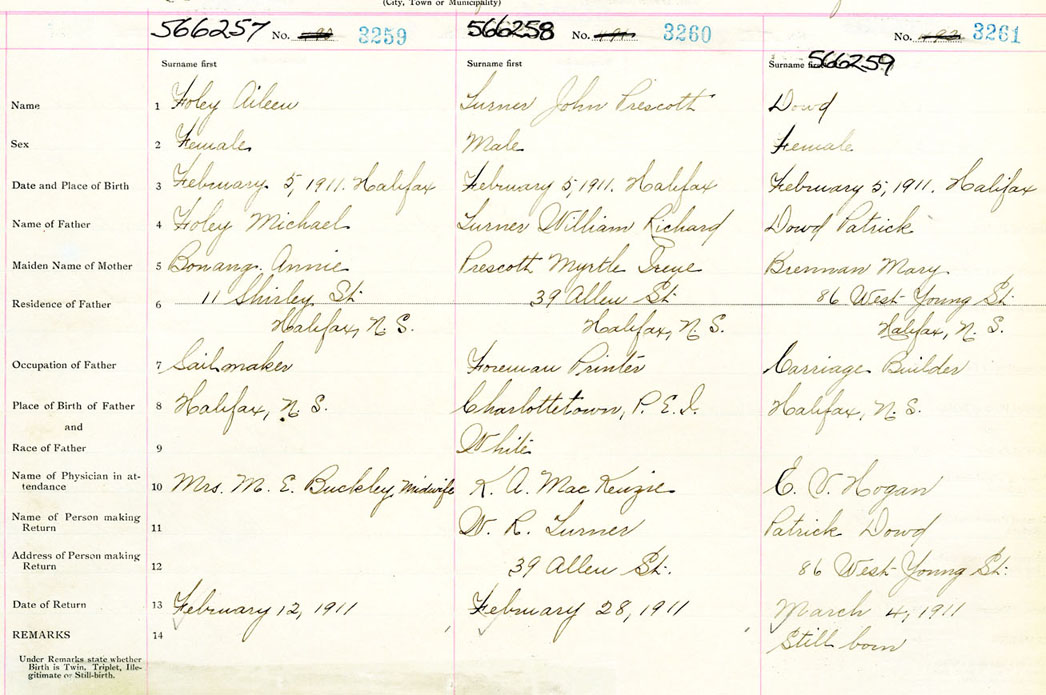 (City, Town or Municipality)
566257 No. 3259 566258 No. 3260 No. 3261
Surname first Surname first Surname first 566259
Name 1 Foley Aileen Turner John Prescott Dowd
Sex 2 Female Male Female
Date and Place of Birth 3 February 5, 1911. Halifax February 5, 1911. Halifax February 5, 1911. Halifax
Name of Father 4 Foley Michael Turner William Richard Dowd Patrick
Maiden Name of Mother 5 Bonang Annie Prescott Myrtle Irene Brennan Mary
Residence of Father 6 11 Shirley St. 39 Allen St. 86 West Young St.
Halifax, N. S. Halifax, N. S. Halifax, N. S.
Occupation of Father 7 Sailmaker Foreman Printer Carriage Builder
Place of Birth of Father 8 Halifax, N. S. Charlottetown, P. E. I. Halifax, N. S.
and
Race of Father 9 White
Name of Physician in at-
tendance 10 Mrs. M. E. Buckley, Midwife K. A. MacKenzie E. V. Hogan
Name of Person making
Return 11 W. R. Turner Patrick Dowd
Address of Person making
Return 12 39 Allen St. 86 West Young St.
Date of Return 13 February 12, 1911 February 28, 1911 March 4, 1911
REMARKS 14 Still born
Under Remarks state whether
Birth is Twin, Triplet, Ille-
gitimate or Still-birth.